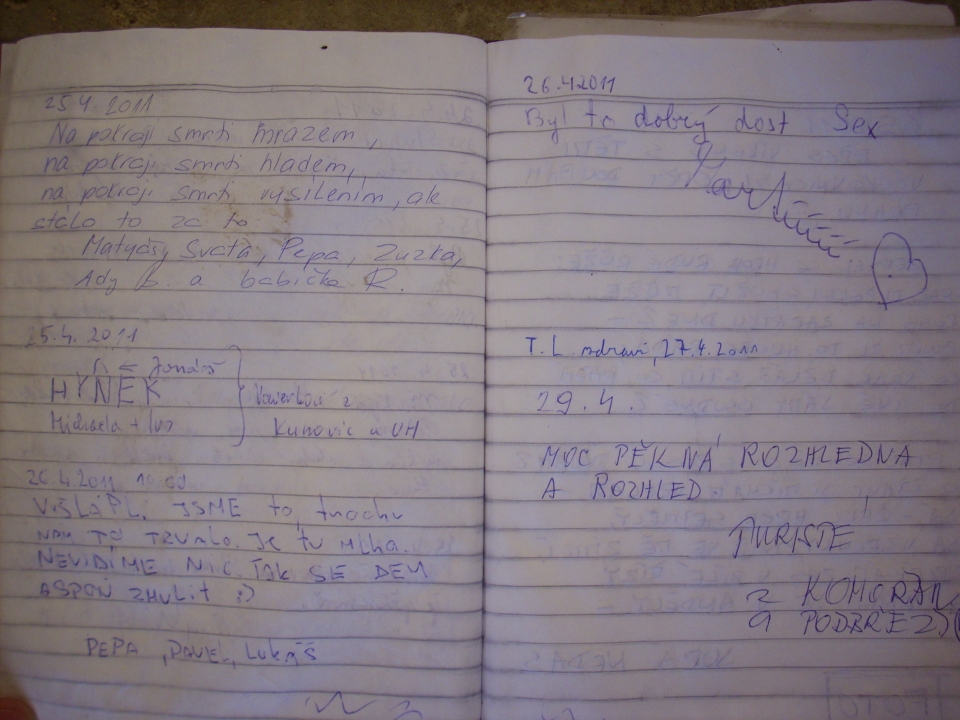 25.4. 2011
Na pokraji smrti mrazem,
na pokraji smrti hladem,
na pokraji smrti vysílením, ale
stálo to za to
Matyáš, Svaťa, Pepa, Zuzka,
Ady B. a babička R.
25.4. 2011
Jonáš
HYNEK
Michaela + Ivo
z
Kunovic u UH
26.4.2011
VYŠLÁPLI JSME to, trochu
NÁM TO TRVALO. JE tu MLHA.
NEVIDÍME NIC, TAK SE DEM
ASPOŇ ZHULIT :)
PEPA, PAVEL, LUKÁŠ
26.4.2011
Byl to dobrý dost Sex
T. L. zdraví 27.4.2011
29.4.
MOC PĚKNÁ ROZHLEDNA
A ROZHLED
TURISTÉ
z
a